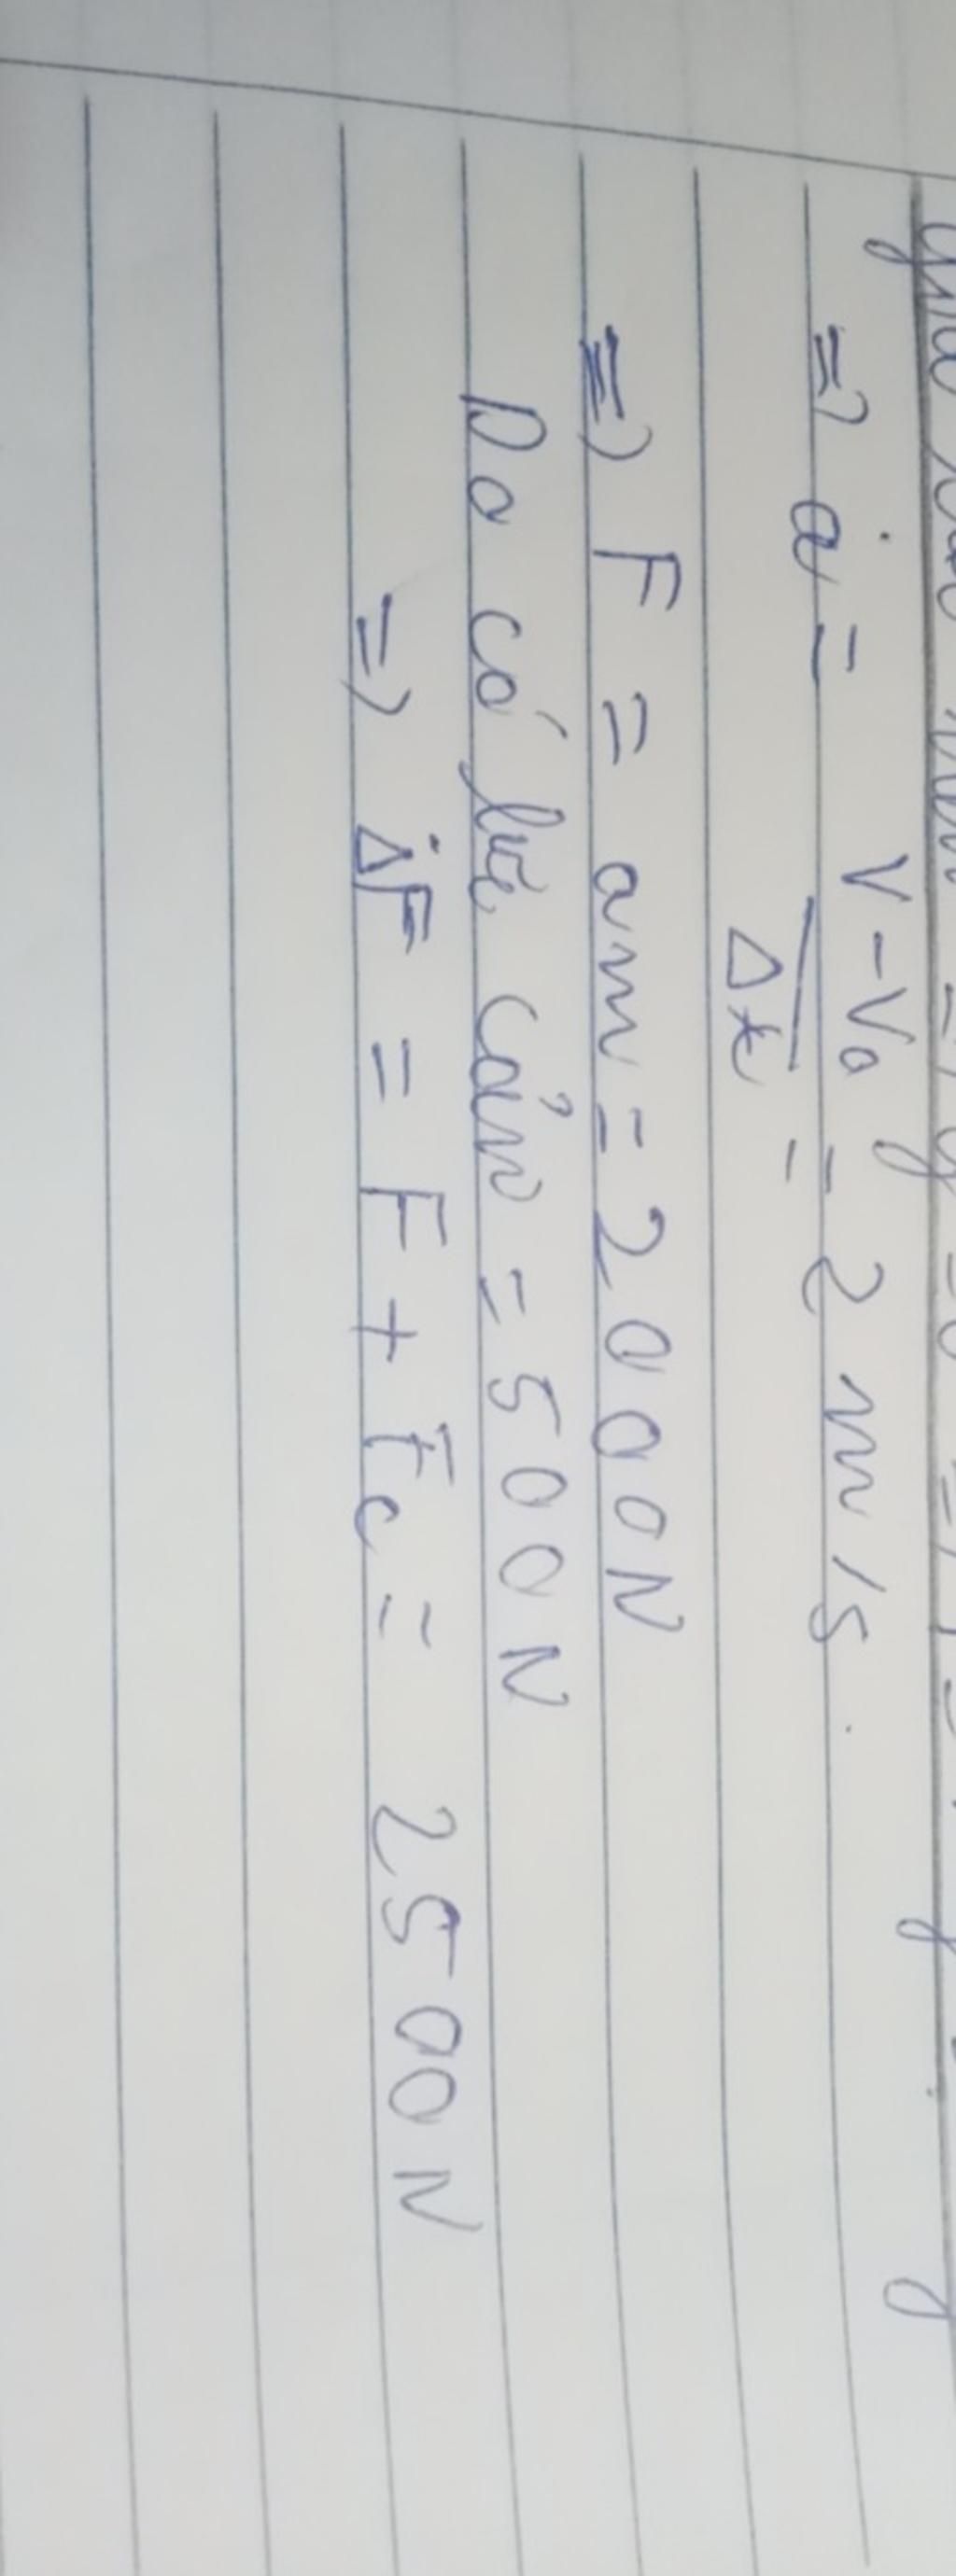 => a = V - V₀ / Δt = = 2 m/s
=> F = am = 2000N
Do có lực cản = 500N
=> ΔF = F + Fc = 2500N